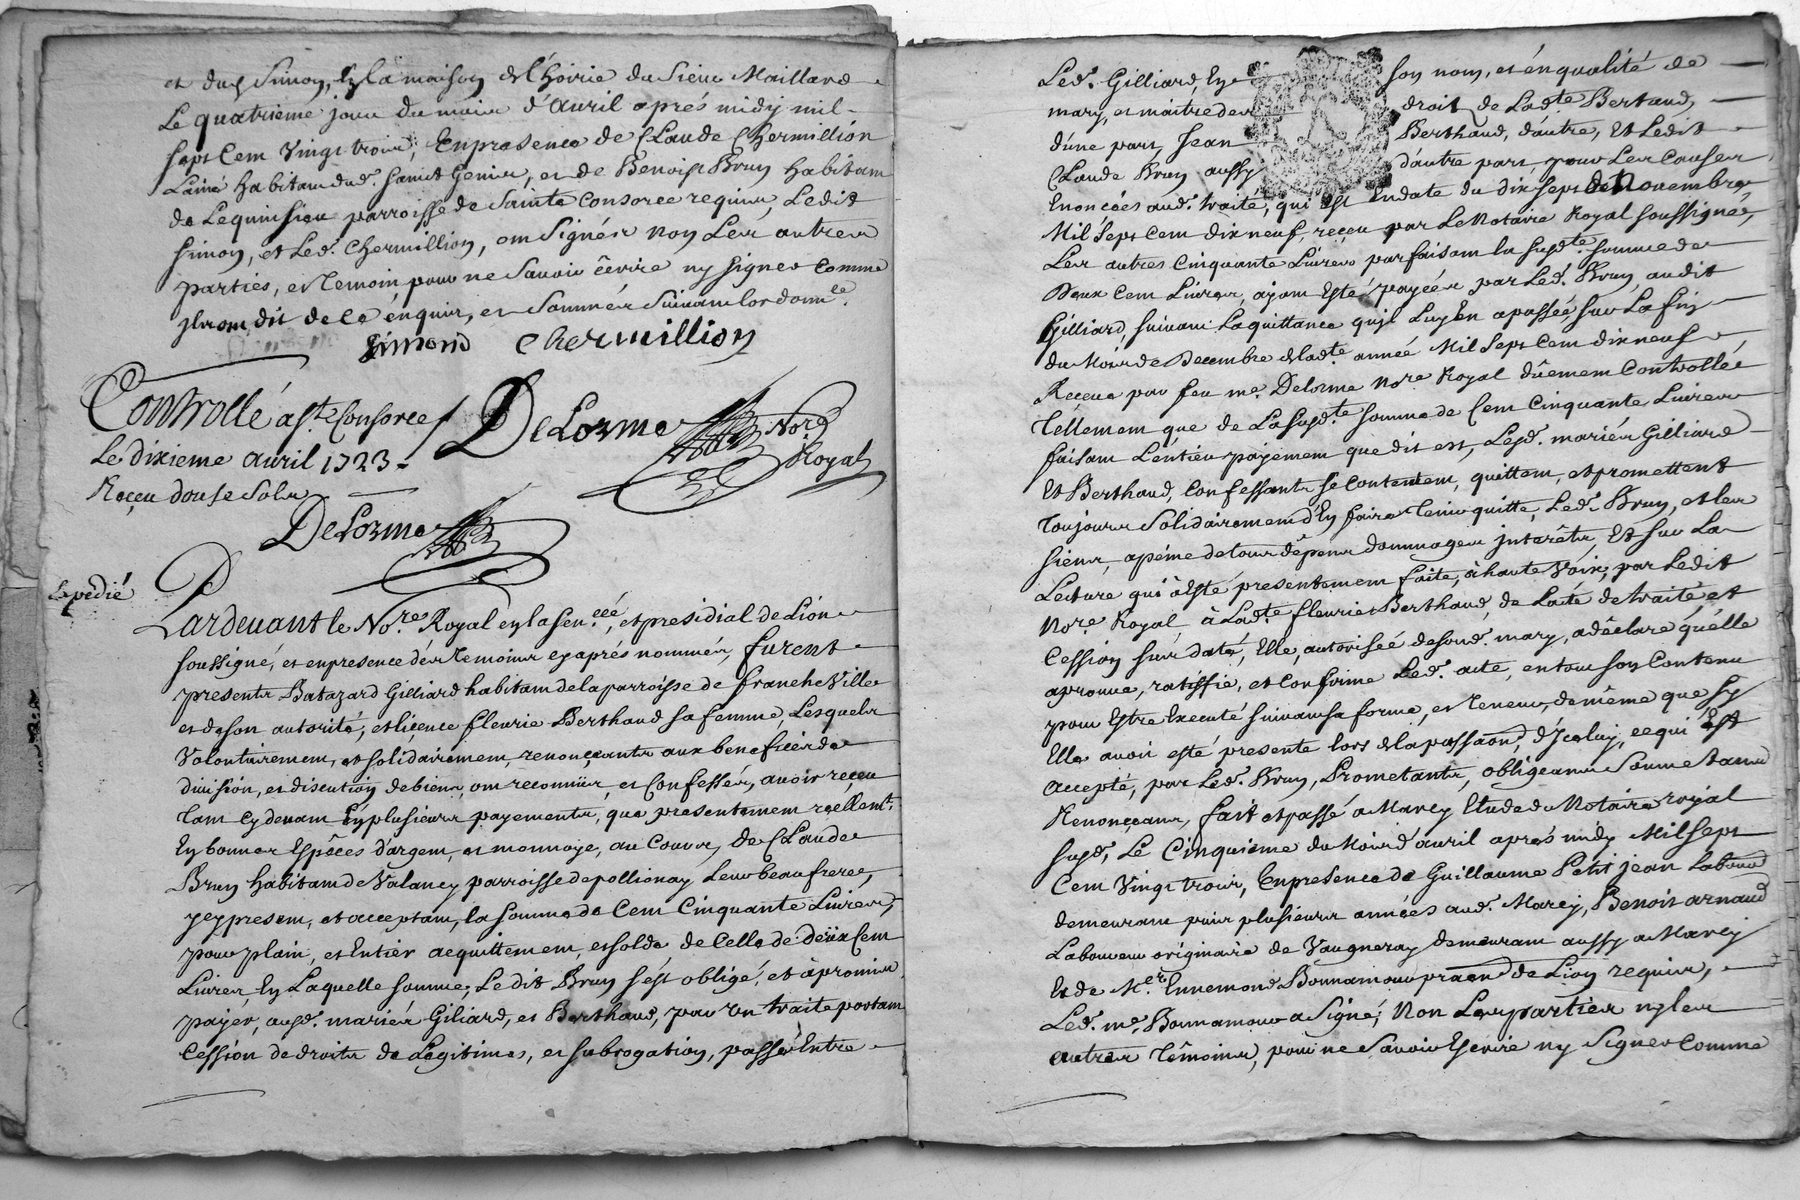 et dud. Simon, En la maison de l'hoirie du Sieur Maillard
Le quatrieme jour du mois d'Avril aprés midy mil
Sept Cem Vingt trois, En presence de Claude Chermillion
Lainé habitam dud. Sainct Genis, et de Benoist Brun habitam
de parroisse de Sainte Consorce requis, Ledit
Simon, et Led. Chermillion, om Signés Non Les autres
parties, et Temoin pour ne Savoir êcrire ny Signer Comme
Ils om dit de ce énquis, et Sommés Suivam lordonn.ce
Simond Chermillion
Controllé a S.te Consorce
Le dixieme avril 1723
Reçeu douse Sols
DeLorme Nore
Royal
DeLorme
Expedié
Pardevant le No.re Royal en la Sen.cée, et presidial de Lion
Soussigné, et en presence dés Temoins cy aprés nommés, furent
presents Batazard Gilliard habitam de la parroisse de francheville
et de son autorité, et liçence fleurie Berthaud sa femme, Lesquels
Volontairemem, et solidairemem, renonçeants aux benefices de
division, et discution de biens, om reconnus, et Confessés, avoir reçeu
Tam cy devam En plusieurs payements, que presentemem reéllem.t
En bonnes Espêces d'argem, et monnoye, au Cours, de Claude
Brun habitam de Valancy parroisse de pollionay Leur beaufrere,
ycy presem, et acceptam, la Somme de Cem Cinquante Livres,
pour plain, et Entier acquittemem, et solde de Celle de deüx Cem
Livres, En Laquelle somme, Ledit Brun s'est obligé, et à promis
payer, ausd. mariés Giliard, et Berthaud, par Un traite portam
Cession de droits de Légitimes, et subrogation, passé Entre
Led. Gilliard, En son nom, et én qualité de
mary, et maitre des droits de Lad.te Bertaud,
d'une part, Jean Berthaud, d'autre, Et Ledit
Claude Brun aussy d'autre part, pour Les Causes
Enoncées aud. traité, qui Est En date du dix sept de Novembre
Mil Sept Cem dix neuf, reçeu par Le Notaire Royal soussigné,
Les autres Cinquante Livres parfaisam la susd.te somme de
Deux Cem Livres, ayam Esté payées par Led. Brun, audit
Gilliard, suivam La quittance qu'il Luy En a passée sur La fin
du Mois de Decembre de lad.te année Mil Sept Cem dix neuf
Reçeue par feu m.e Delorme No.re Royal dûemem Controllée
Téllemem que de La susd.te somme de Cem Cinquante Livres
faisam L'entier payemem que dit est, Lesd. mariés Gilliard
Et Berthaud, Confessants se Contentem, quittem, et promettent
Toujours Solidairemem d'En faire Tenir quitte, Led. Brun, et les
siens, a péine de tous dêpens dommages intarêts, Et sur La
Lecture qui à Esté presentemem faite, à haute Voix, par Ledit
No.re Royal, à Lad.te fleurie Berthaud, de Lacte de traité et
Cession sus daté, Elle, autorisée de son d. mary, a déclaré qu'élle
aprouve, ratiffie, et Confirme Led. acte, en tout son Contenu
pour Estre Executé suivam sa forme, et Teneur, de même que sy
Elle avoit esté presente lors de la passaõn d'Iceluy, ce qui Est
accepté, par Led. Brun, Prometants, obligeants
Renonçeans, fait et passé a Marcy Etude du Notaire royal
susd. Le Cinquieme du Mois d'avril aprés midy Mil Sept
Cem Vingt trois, En presence de Guillaume Petit jean Laboureur
demeuram puis plusieurs années aud. Marcy, Benoit arnaud
Laboureur originaire de Vaugneray demeuram aussy a Marcy
Et de M.e Ennemond Bonnamour de Lion requis,
Led. m.e Bonnamour a Signé, Non Les parties ny les
autres Têmoins, pour ne Savoir Escrire ny Signer Comme